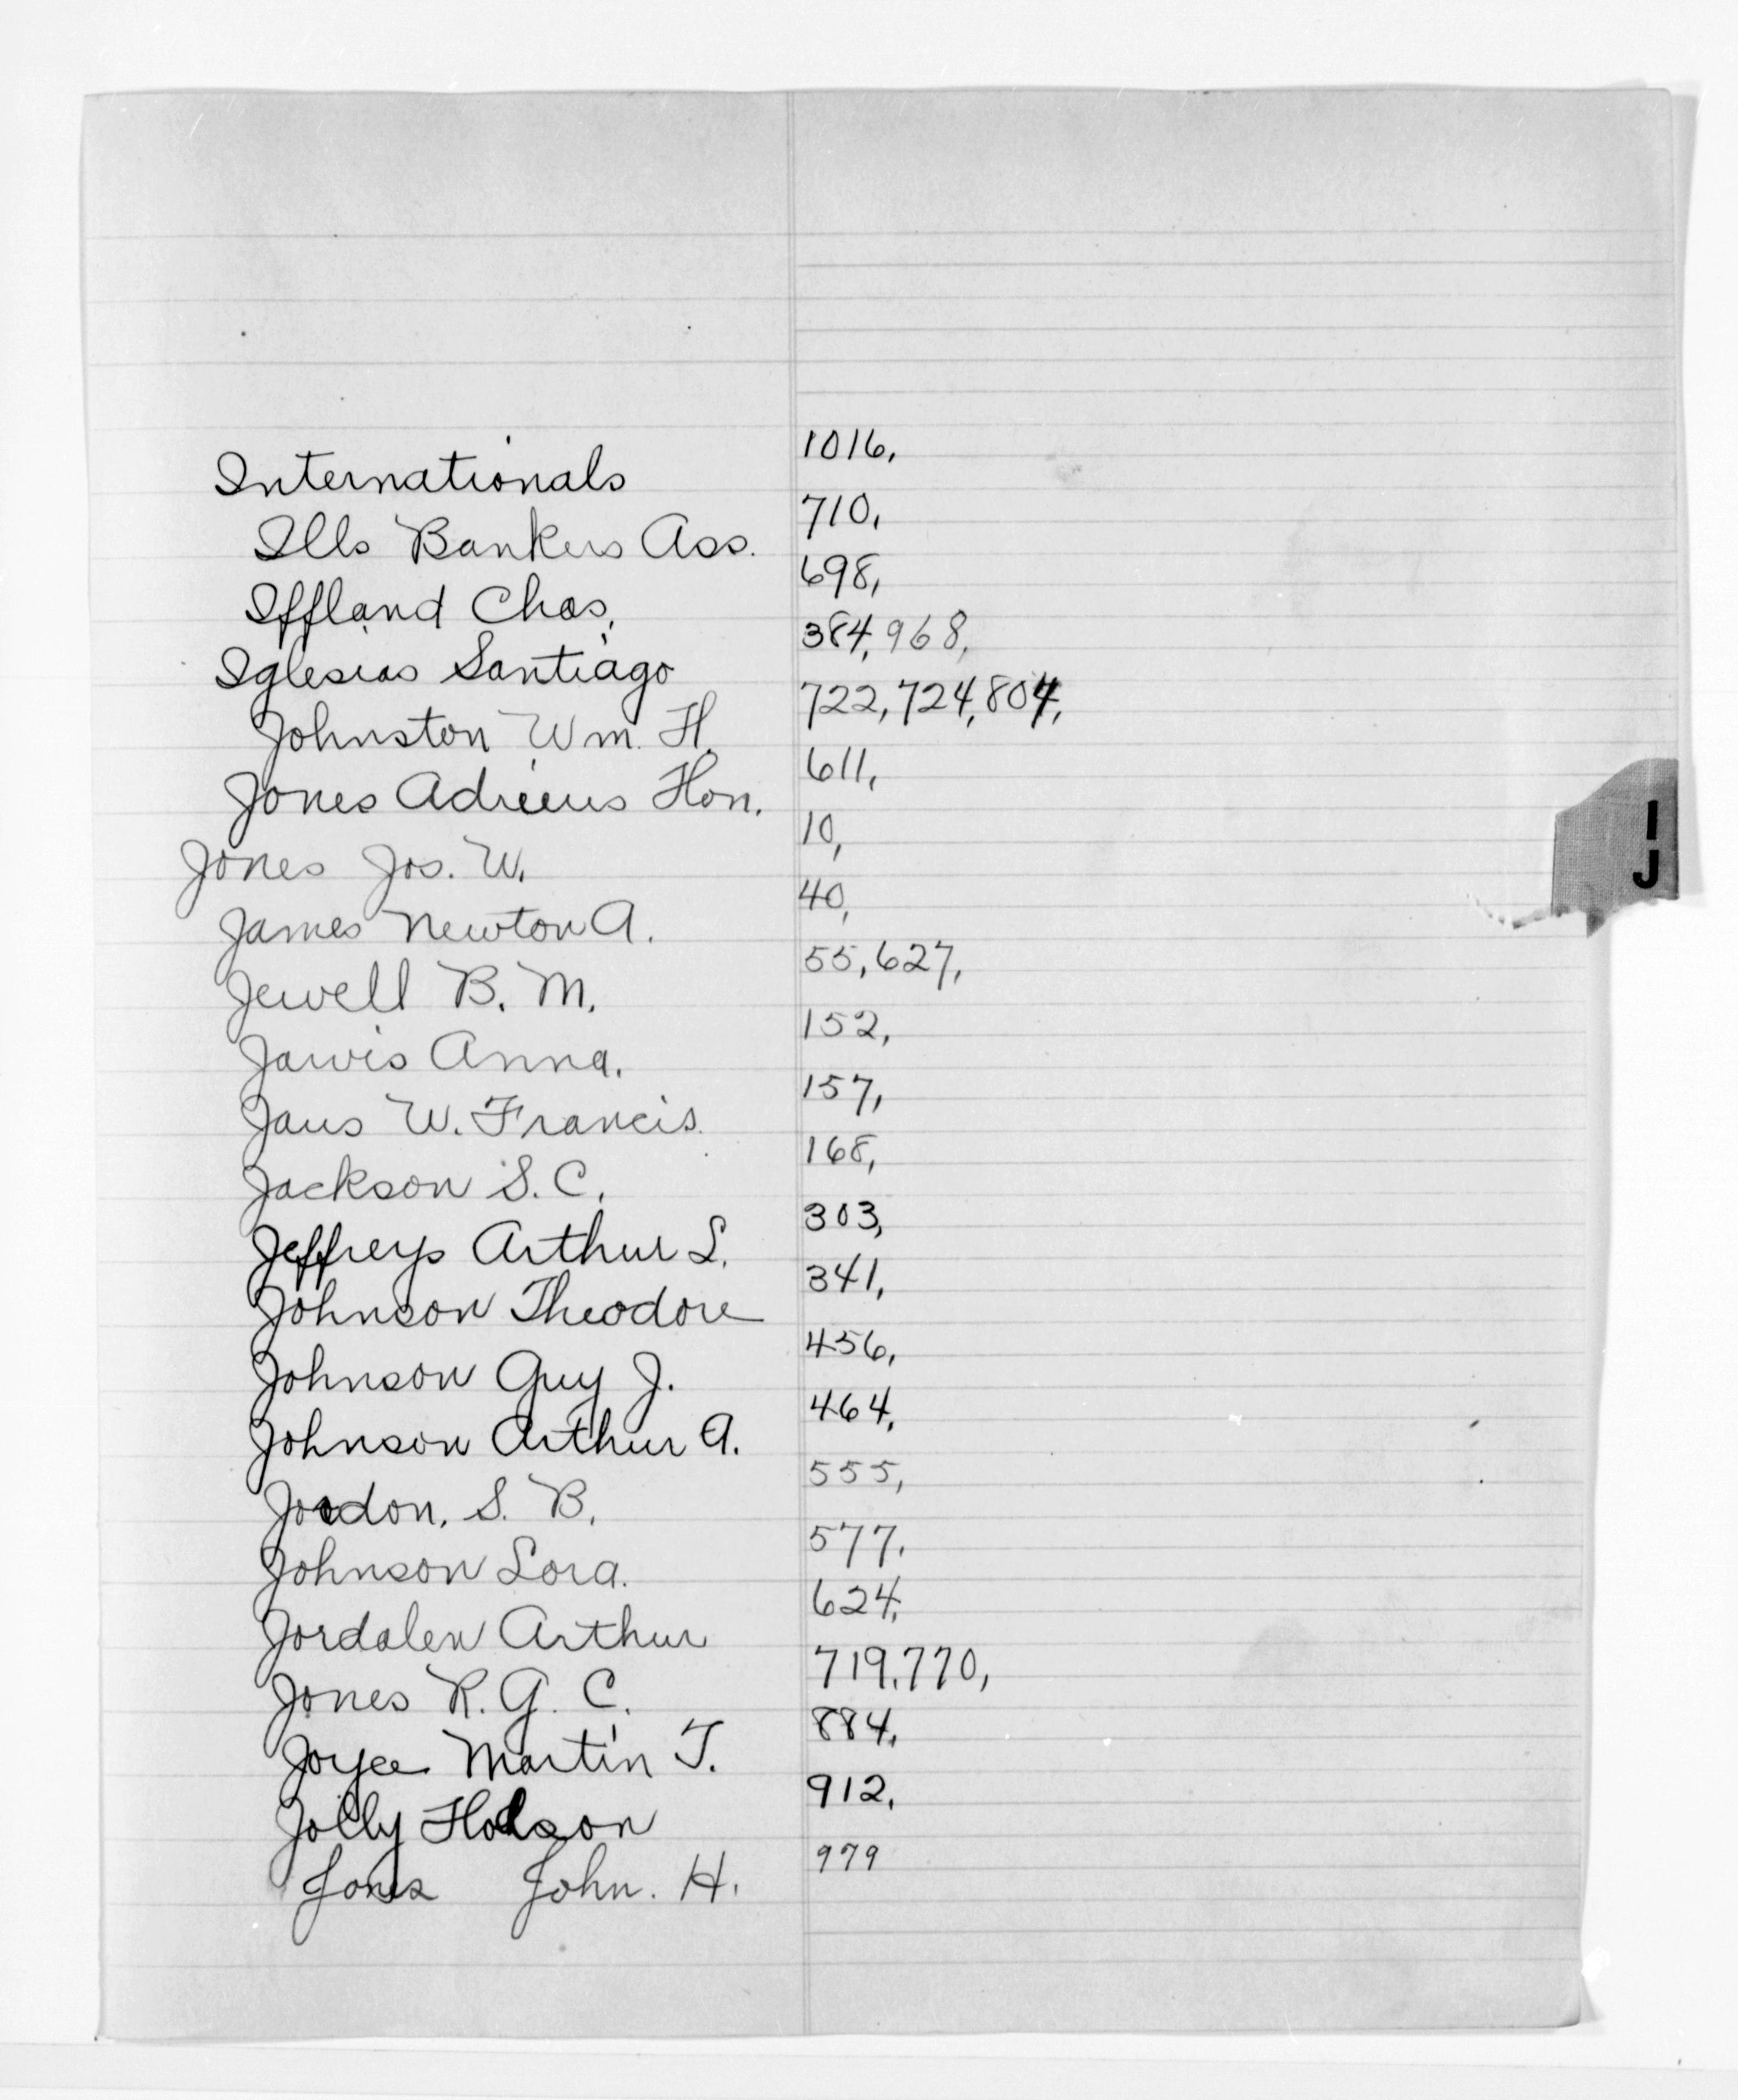 Internationals 1016,
Ills Bankers Ass. 710,
Iffland Chas. 698,
Iglesias Santiago 384, 968,
Johnston Wm. H. 722, 724, 804,
Jones Adrieus Hon. 611,
Jones Jos. W. 10,
James Newton A. 40,
Jewell B. M. 55, 627,
Jarvis Anna. 152,
Jaus W. Francis. 157,
Jackson S. C. 168,
Jeffreys Arthur L. 303,
Johnson Theodore 341,
Johnson Guy J. 456,
Johnson Arthur A. 464,
Jordon, S. B. 555,
Johnson Lora. 577,
Jordalen Arthur 624,
Jones R. G. C. 719, 770,
Joyce Martin T. 884,
Jolly 912,
Jones John. H. 979
I
J